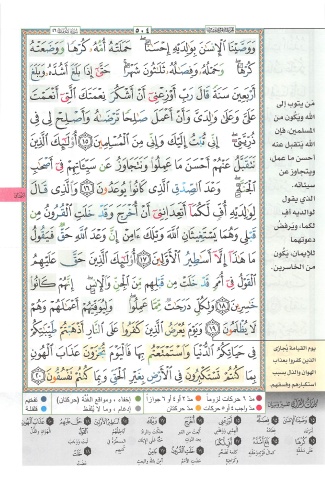 ٥٠٤
وَوَصَّيْنَا ٱلْإِنسَٰنَ بِوَٰلِدَيْهِ إِحْسَٰنًا حَمَلَتْهُ أُمُّهُۥ كُرْهًا وَوَضَعَتْهُ
كُرْهًا وَحَمْلُهُۥ وَفِصَٰلُهُۥ ثَلَٰثُونَ شَهْرًا حَتَّىٰٓ إِذَا بَلَغَ أَشُدَّهُۥ وَبَلَغَ
أَرْبَعِينَ سَنَةً قَالَ رَبِّ أَوْزِعْنِىٓ أَنْ أَشْكُرَ نِعْمَتَكَ ٱلَّتِىٓ أَنْعَمْتَ
عَلَىَّ وَعَلَىٰ وَٰلِدَىَّ وَأَنْ أَعْمَلَ صَٰلِحًا تَرْضَىٰهُ وَأَصْلِحْ لِى فِى
ذُرِّيَّتِىٓ إِنِّى تُبْتُ إِلَيْكَ وَإِنِّى مِنَ ٱلْمُسْلِمِينَ ١٥ أُو۟لَٰٓئِكَ ٱلَّذِينَ
نَتَقَبَّلُ عَنْهُمْ أَحْسَنَ مَا عَمِلُوا۟ وَنَتَجَاوَزُ عَن سَيِّـَٔاتِهِمْ فِىٓ أَصْحَٰبِ
ٱلْجَنَّةِ وَعْدَ ٱلصِّدْقِ ٱلَّذِى كَانُوا۟ يُوعَدُونَ ١٦ وَٱلَّذِى قَالَ
لِوَٰلِدَيْهِ أُفٍّ لَّكُمَآ أَتَعِدَانِنِىٓ أَنْ أُخْرَجَ وَقَدْ خَلَتِ ٱلْقُرُونُ مِن
قَبْلِى وَهُمَا يَسْتَغِيثَانِ ٱللَّهَ وَيْلَكَ ءَامِنْ إِنَّ وَعْدَ ٱللَّهِ حَقٌّ فَيَقُولُ
مَا هَٰذَآ إِلَّآ أَسَٰطِيرُ ٱلْأَوَّلِينَ ١٧ أُو۟لَٰٓئِكَ ٱلَّذِينَ حَقَّ عَلَيْهِمُ
ٱلْقَوْلُ فِىٓ أُمَمٍ قَدْ خَلَتْ مِن قَبْلِهِم مِّنَ ٱلْجِنِّ وَٱلْإِنسِ إِنَّهُمْ كَانُوا۟
خَٰسِرِينَ ١٨ وَلِكُلٍّ دَرَجَٰتٌ مِّمَّا عَمِلُوا۟ وَلِيُوَفِّيَهُمْ أَعْمَٰلَهُمْ وَهُمْ
لَا يُظْلَمُونَ ١٩ وَيَوْمَ يُعْرَضُ ٱلَّذِينَ كَفَرُوا۟ عَلَى ٱلنَّارِ أَذْهَبْتُمْ طَيِّبَٰتِكُمْ
فِى حَيَاتِكُمُ ٱلدُّنْيَا وَٱسْتَمْتَعْتُم بِهَا فَٱلْيَوْمَ تُجْزَوْنَ عَذَابَ ٱلْهُونِ
بِمَا كُنتُمْ تَسْتَكْبِرُونَ فِى ٱلْأَرْضِ بِغَيْرِ ٱلْحَقِّ وَبِمَا كُنتُمْ تَفْسُقُونَ ٢٠
من يتوب إلى
الله ويكون من
المسلمين، فإن
الله يتقبل عنه
أحسن ما عمل،
ويتجاوز عن
سيئاته.
الذي يقول
لوالديه أف
لكما، ويرفض
دعوتهما
للإيمان يكون
من الخاسرين.
يوم القيامة يجازى
الذين كفروا بعذاب
الهون والذل بسبب
استكبارهم وفسقهم.
مد ٦ حركات لزوماً
مد ٢ أو ٤ أو ٦ جوازاً
إخفاء، ومواقع الغنة (حركتان)
تفخيم
مد واجب ٤ أو ٥ حركات
مد حركتان
إدغام، وما لا يلفظ
قلقلة